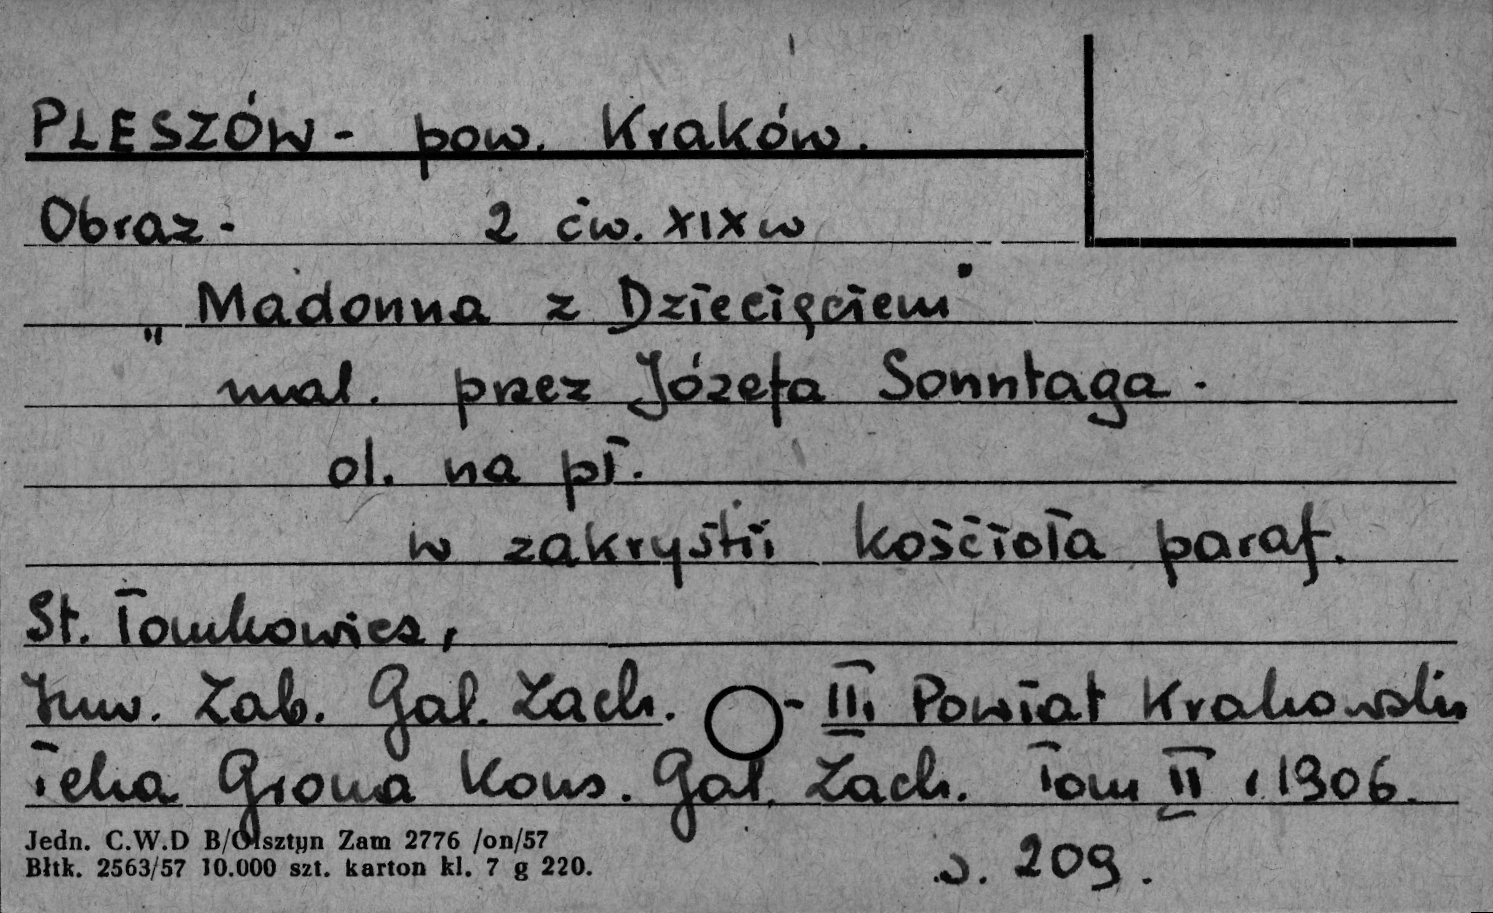 PLESZÓW - pow. Kraków.
Obraz - 2 ćw. XIX w
"Madonna z Dziecięciem"
mal. przez Józefa Sonntaga.
ol. na pł.
w zakrystii kościoła paraf.
St. Tomkowicz,
Inw. Zab. Gal. Zach. - III. Powiat Krakowski
Teka Grona Kons. Gal. Zach. Tom II, 1906.
s. 209.
Jedn. C.W.D B/Olsztyn Zam 2776 /on/57
Błtk. 2563/57 10.000 szt. karton kl. 7 g 220.